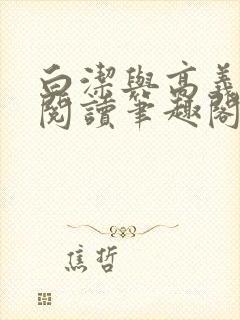 白潔與高義
閱讀筆趣閣
焦哲